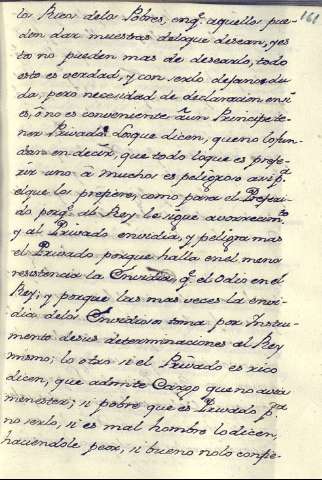 161
los Ricos de los Pobres, enq.e aquellos pue-
den dar muestras de loque desean, y es
tos no pueden mas de desearlo, todo
esto es verdad, y con serlo dejanos du
da, pero necesidad de declaracion en si
es, ò no es conveniente à un Principe te-
ner Privado. Los que dicen, que no lo fun-
dan en decir, que todo loque es prefe-
rir uno à muchos es peligroso assi p.a
el que los prefiere, como para el Preferi-
do porq.e al Rey le sigue aborrecim.to
y al Privado envidia, y peligra mas
el Privado porque halla en el menos
resistencia la Envidia, q.e el Odio en el
Rey; y porque las mas veces la envi-
dia de los Envidiosos toma por Instru-
mento de sus determinaciones al Rey
mismo; lo otro si el Privado es rico
dicen, que admite Cargo que no avia
menester; si pobre que es Privado p.a
no serlo, si es mal hombre lo dicen,
haciendole peor, si bueno nolo confie-